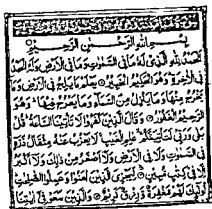 بِسْمِ اللهِ الرَّحْمٰنِ الرَّحِيْمِ
اَلْحَمْدُ لِلّٰهِ الَّذِيْ لَهٗ مَا فِي السَّمٰوٰتِ وَمَا فِي الْاَرْضِ وَلَهُ الْحَمْدُ
فِي الْاٰخِرَةِ وَهُوَ الْحَكِيْمُ الْخَبِيْرُ يَعْلَمُ مَا يَلِجُ فِي الْاَرْضِ وَمَا
يَخْرُجُ مِنْهَا وَمَا يَنْزِلُ مِنَ السَّمَآءِ وَمَا يَعْرُجُ فِيْهَا وَهُوَ
الرَّحِيْمُ الْغَفُوْرُ وَقَالَ الَّذِيْنَ كَفَرُوْا لَا تَاْتِيْنَا السَّاعَةُ قُلْ
بَلٰى وَرَبِّيْ لَتَاْتِيَنَّكُمْ عٰلِمِ الْغَيْبِ لَا يَعْزُبُ عَنْهُ مِثْقَالُ ذَرَّةٍ
فِي السَّمٰوٰتِ وَلَا فِي الْاَرْضِ وَلَآ اَصْغَرُ مِنْ ذٰلِكَ وَلَآ اَكْبَرُ
اِلَّا فِيْ كِتٰبٍ مُّبِيْنٍ لِّيَجْزِيَ الَّذِيْنَ اٰمَنُوْا وَعَمِلُوا الصّٰلِحٰتِ
اُولٰٓئِكَ لَهُمْ مَّغْفِرَةٌ وَّرِزْقٌ كَرِيْمٌ وَالَّذِيْنَ سَعَوْ فِيْٓ اٰيٰتِنَا